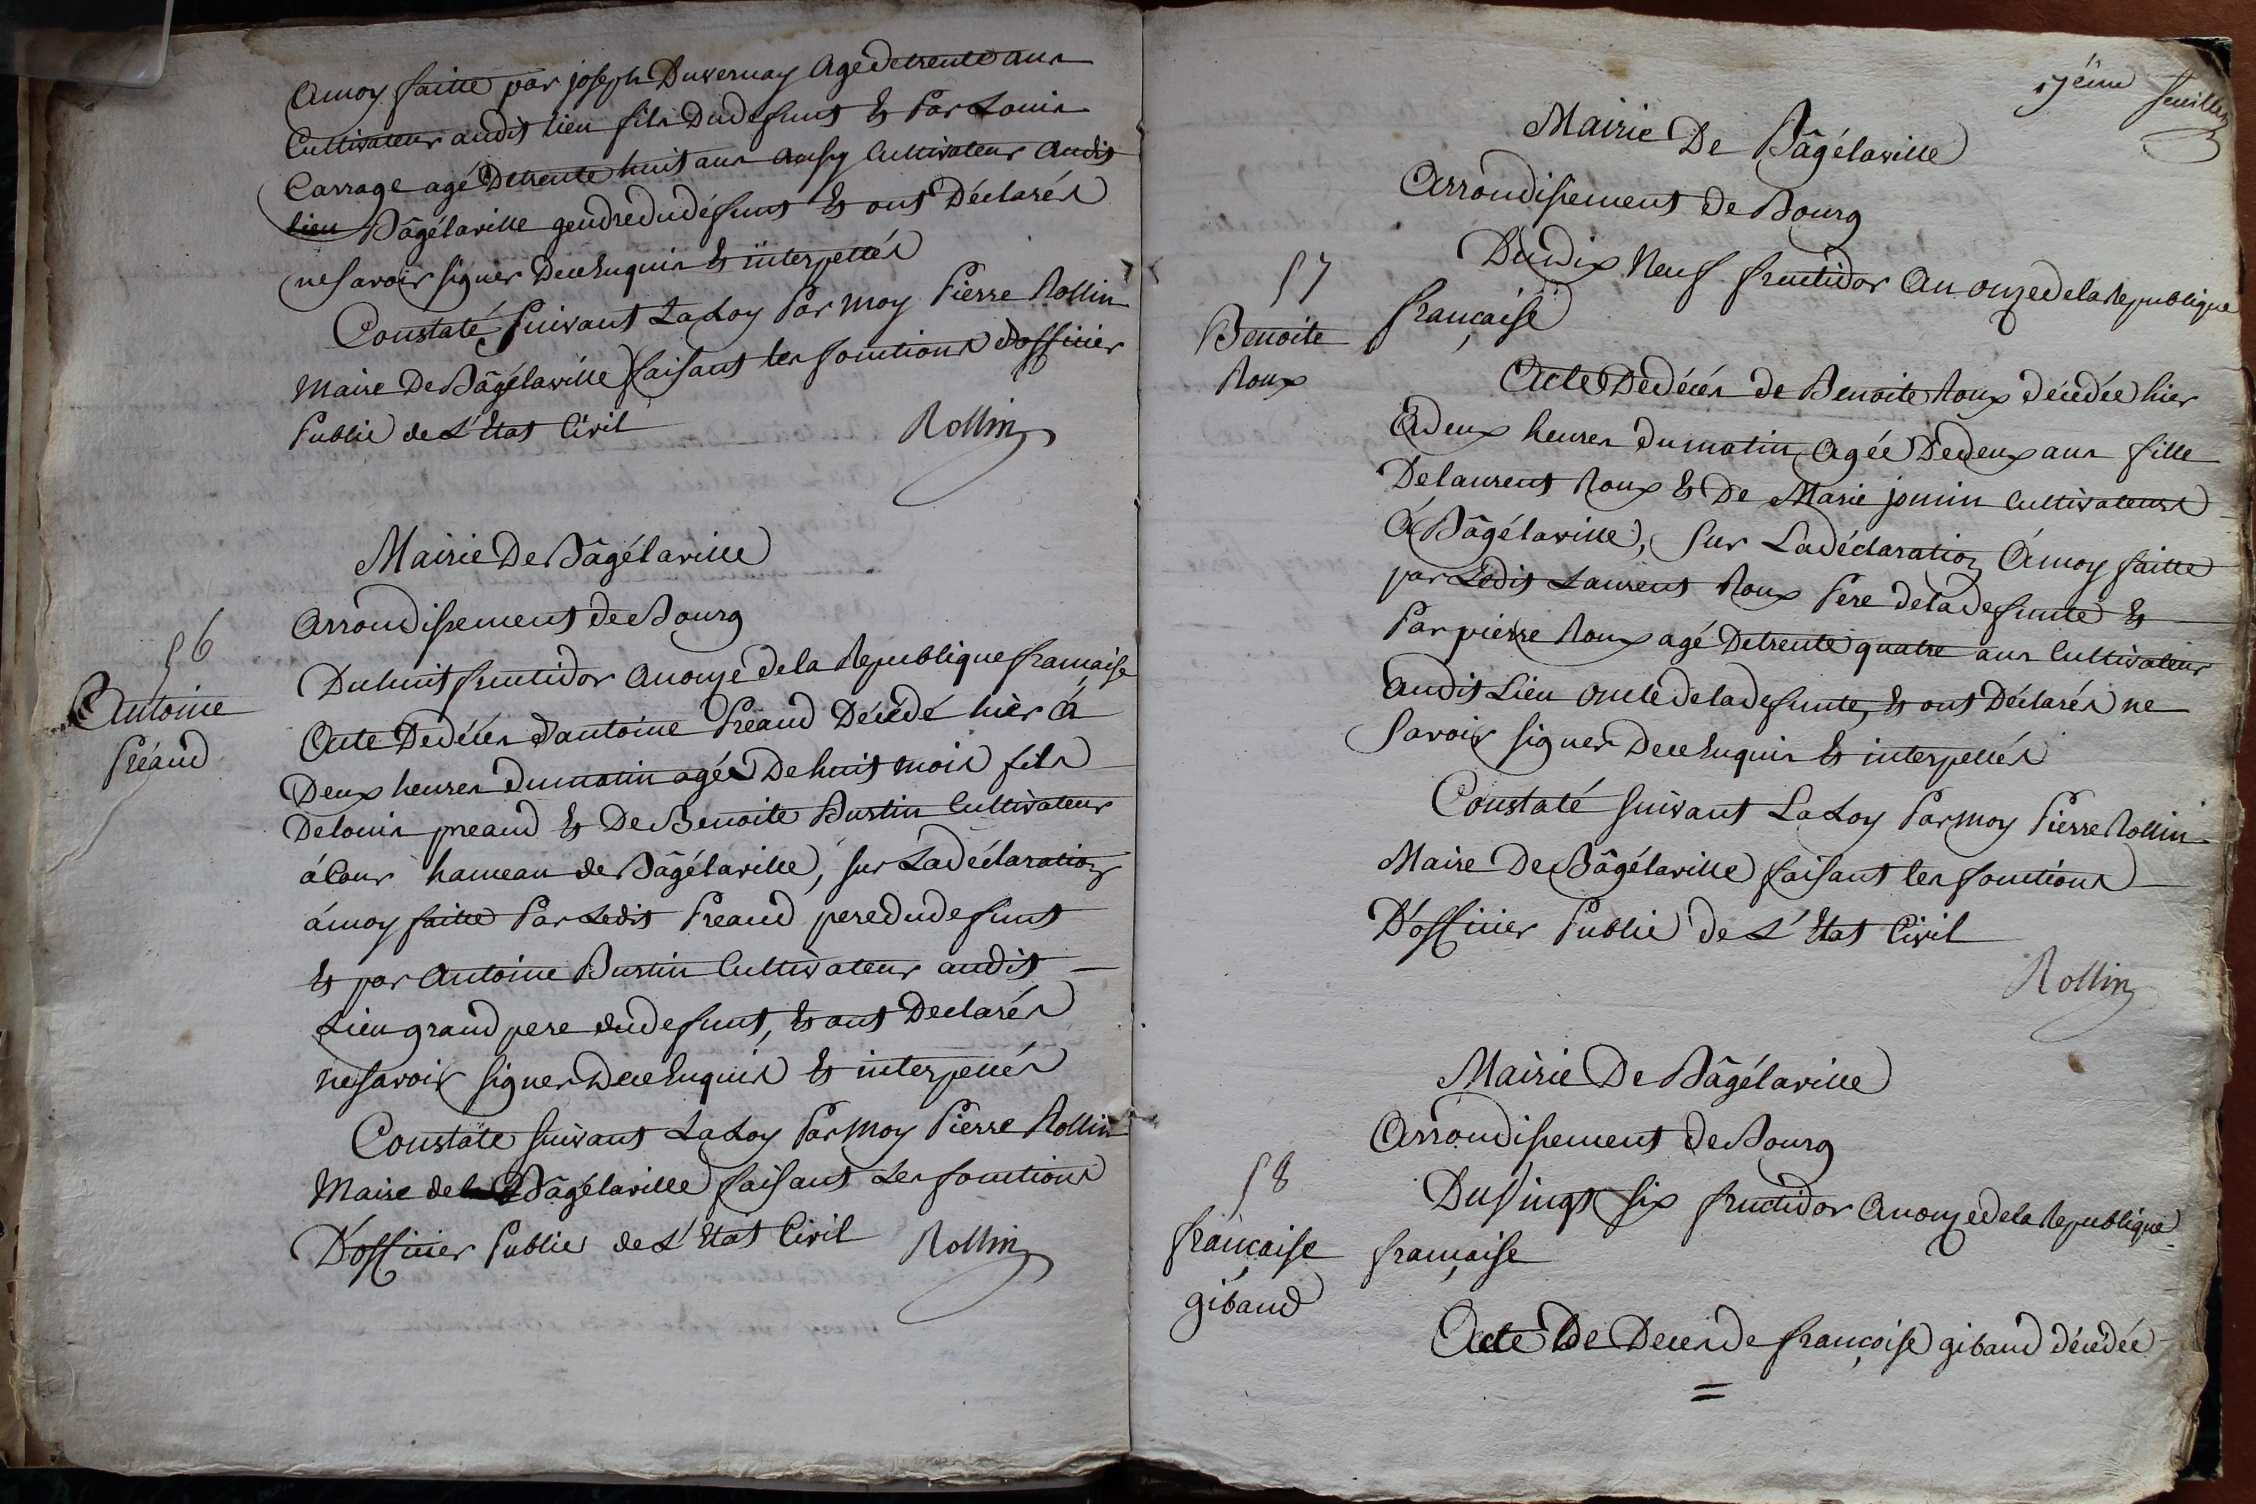 amoy faitte par joseph Duvernay agé de trente ans
Cultivateur audit lieu fils Dudefunt & Par Louis
Carrage agé De trente huit ans aussy Cultivateur audit
lieu Bâgélaville gendre du défunt & ont Déclarés
ne Savoir signer De ce Enquis & interpellés
Constaté Suivant La Loy Par moy Pierre Rollin
Maire De Bâgélaville faisant les fonctions d'officier
Public de L'Etat Civil
Rollin
Mairie De Bâgélaville
arrondissement de Bourg
56
Antoine
Préaud
Du huit fructidor an onze de la Republique française
Acte De décés d'antoine Préaud Décédé hièr á
Deux heures du matin agé De huit mois fils
De louis preaud & De Benoite Burtin Cultivateur
á Cour hameau de Bâgélaville, sur La déclaration
á moy faitte Par Ledit Preaud pere du defunt
& par Antoine Burtin Cultivateur audit
Lieu grand pere du defunt, & ont Declarés
ne Savoir signer De ce Enquis & interpellés
Constaté Suivant La Loy Par Moy Pierre Rollin
Maire de Bâgélaville faisant Les fonctions
D'officier Public de L'Etat Civil
Rollin
17éme feuillet
Mairie De Bâgélaville
arrondissement de Bourg
57
Benoite
Roux
Du dix Neuf fructidor an onze de la Republique
française
Acte De décés de Benoite Roux décédée hier
á deux heures du matin, agée De deux ans fille
De laurent Roux & De Marie jomin Cultivateurs
á Bâgélaville, sur La déclaration á moy faitte
par Ledit Laurent Roux Pere de la defunte &
Par pierre Roux agé De trente quatre ans Cultivateur
audit Lieu oncle de la defunte, & ont Déclarés ne
Savoir signer De ce Enquis & interpellés
Constaté suivant La Loy Par moy Pierre Rollin
Maire De Bâgélaville faisant les fonctions
D'officier Public de L'Etat Civil
Rollin
Mairie De Bâgélaville
arrondissement de Bourg
58
françoise
gibaud
Du Vingt six fructidor an onze de la Republique
française
Acte De Deces de françoise gibaud décédée
=